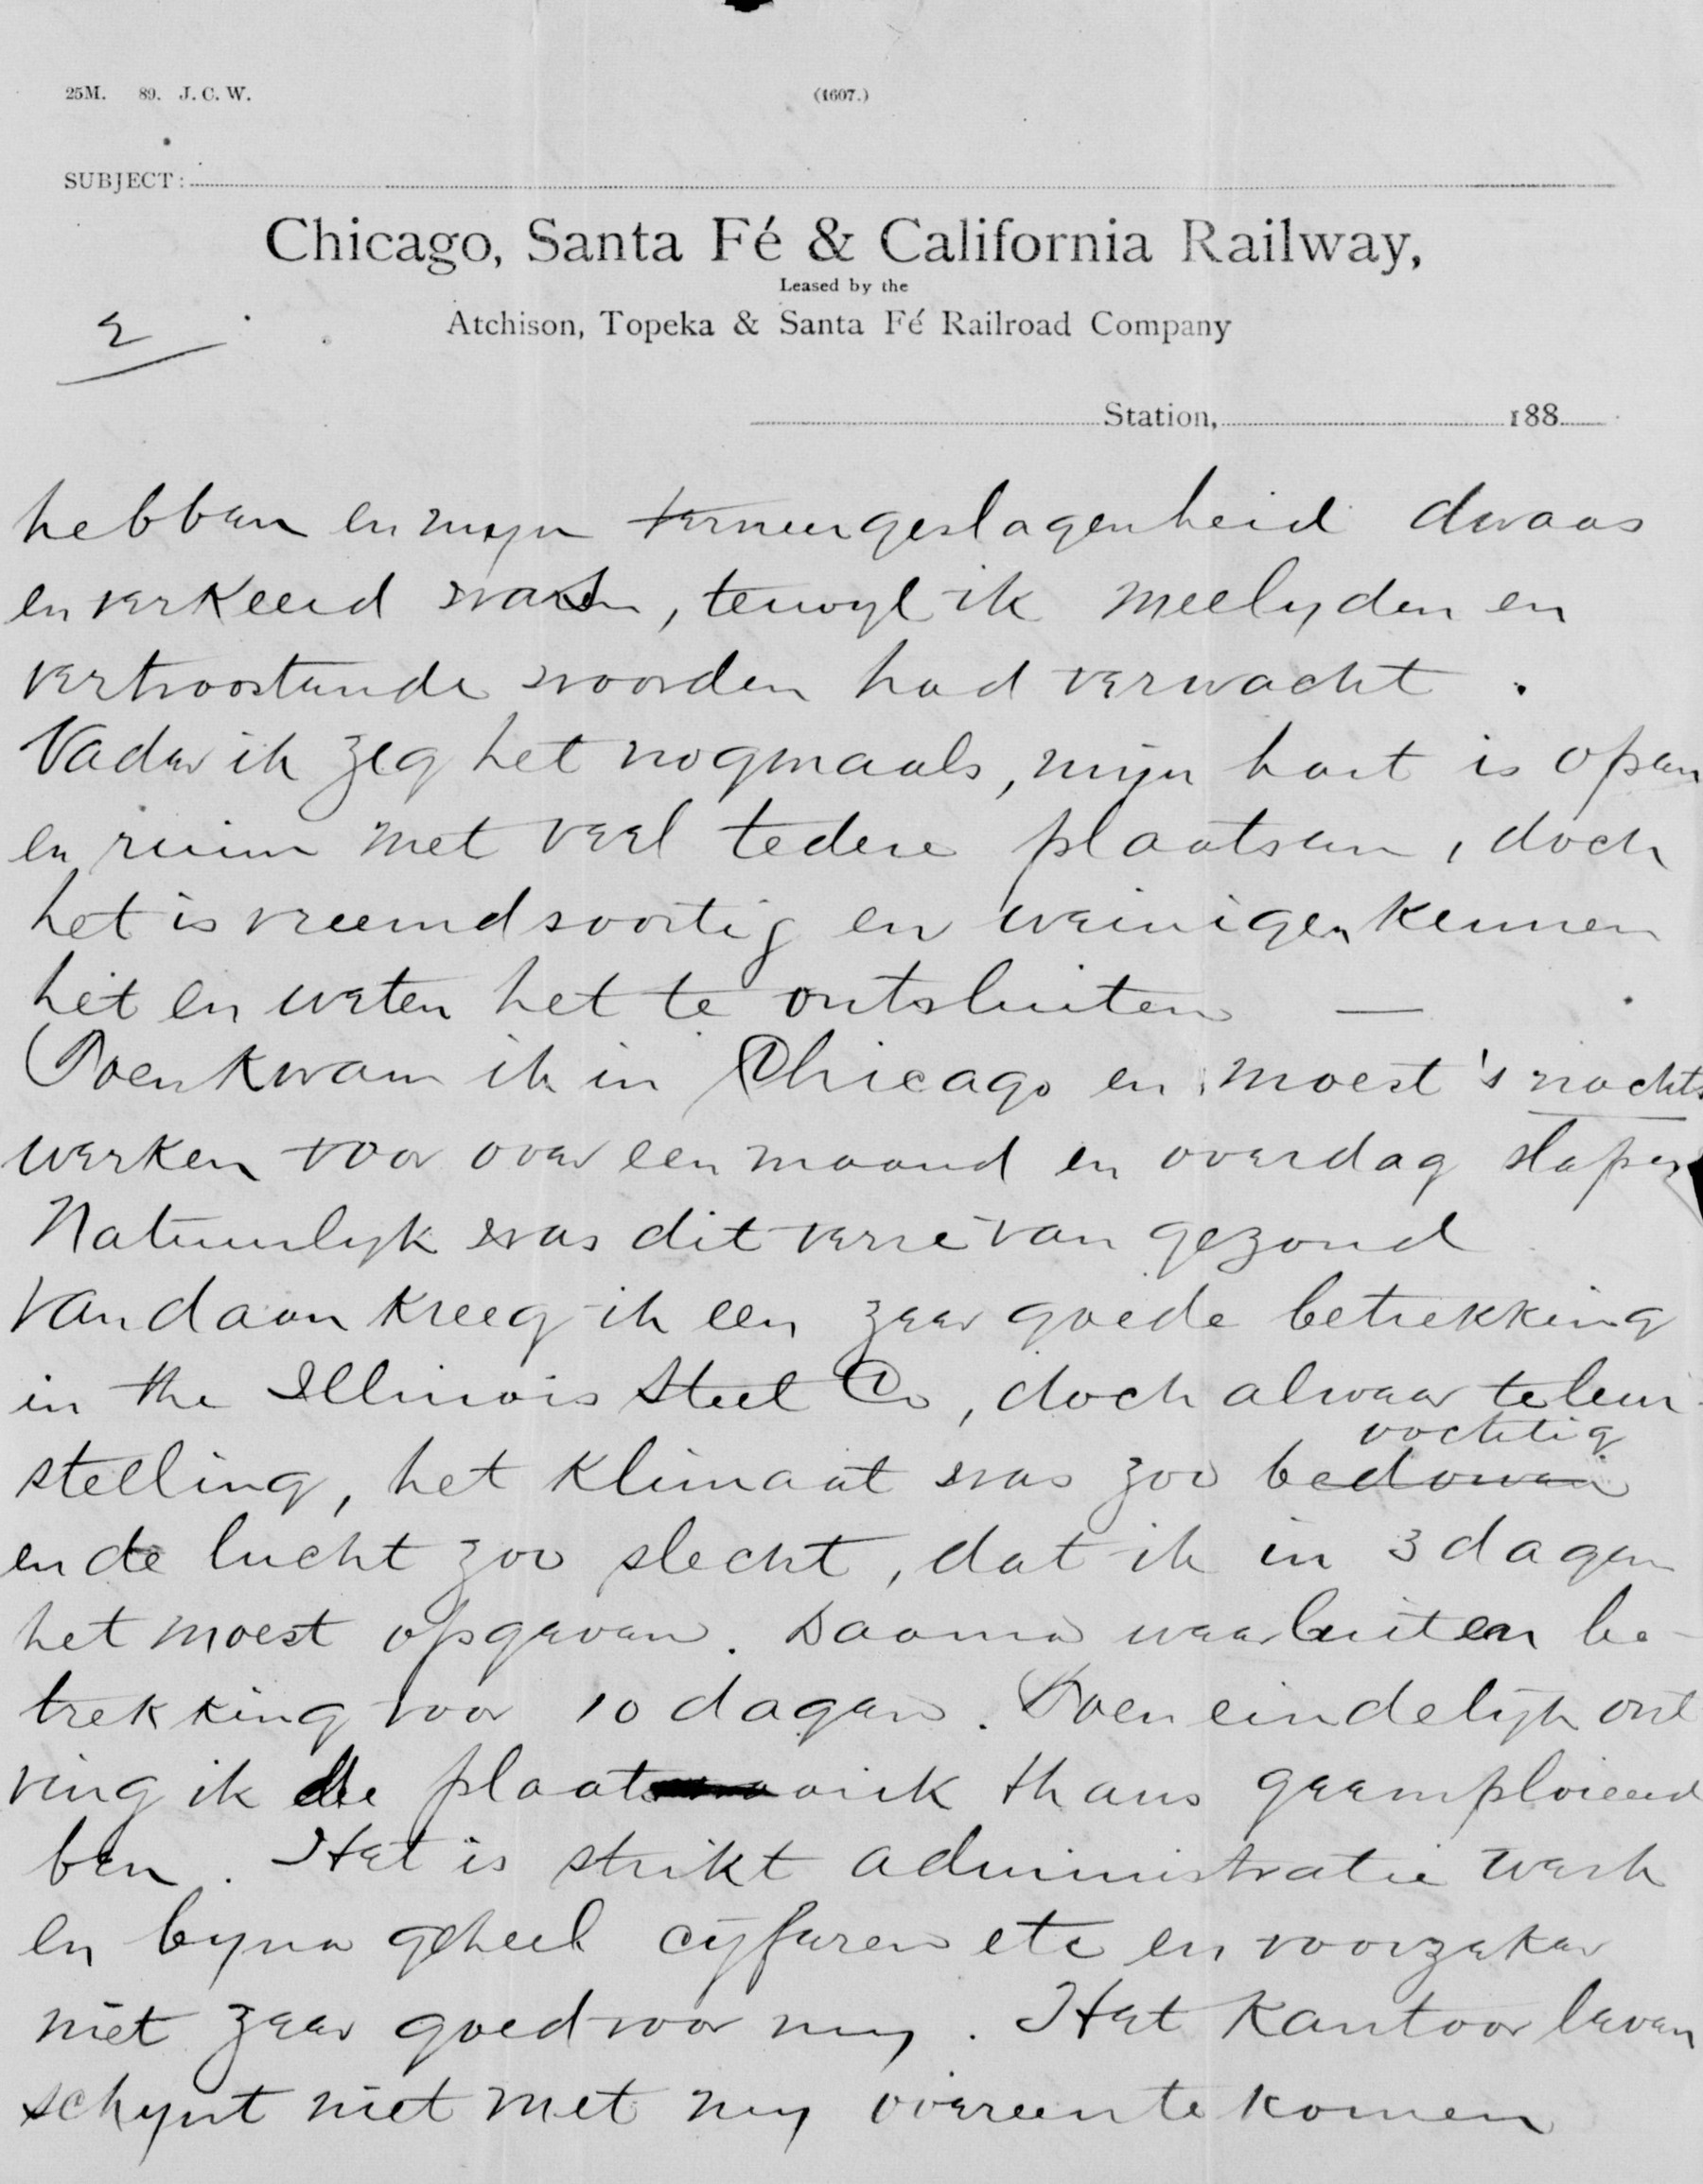 25M. 89. J. C. W. (1607.)
SUBJECT:
Chicago, Santa Fé & California Railway,
Leased by the
Atchison, Topeka & Santa Fé Railroad Company
2
Station, 188
hebben en mijn terneergeslagenheid dwaas
en verkeerd was, terwyl ik meelyden en
vertroostende woorden had verwacht.
Vader ik zeg het nogmaals, mijn hart is open
en ruim met veel tedere plaatsen, doch
het is vreemdsoortig en weinigen kennen
het en weten het te ontsluiten —
Toen kwam ik in Chicago en moest 's nachts
werken voor over een maand en overdag slapen
Natuurlyk was dit verre van gezond
Vandaar kreeg ik een zeer goede betrekking
in the Illinois Steel Co, doch alweer teleur-
vochtig
stelling, het klimaat was zoo bedowen
en de lucht zoo slecht, dat ik in 3 dagen
het moest opgeven. Daarna weer buiten be-
trekking voor 10 dagen. Toen eindelijk ont
ving ik de plaats waarik thans geemploieerd
ben. Het is strikt administratie werk
en byna geheel cijferen etc en voorzeker
niet zeer goed voor my. Het kantoor leven
schynt niet met my overeen te komen